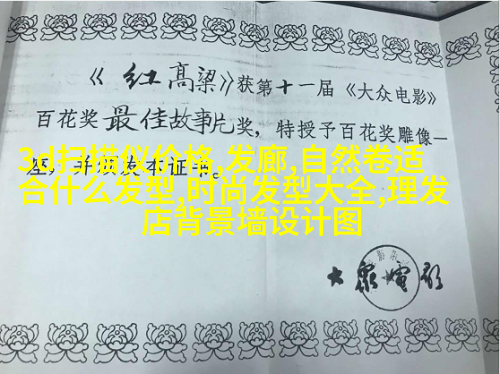 《红高粱》获第十一届《大众电影》
百花奖最佳故事片奖，特授予百花奖雕像一
座，并颁发本证书。
3d扫描仪价格,发廊,自然卷适
合什么发型,时尚发型大全,理发
店背景墙设计图
大眾電影